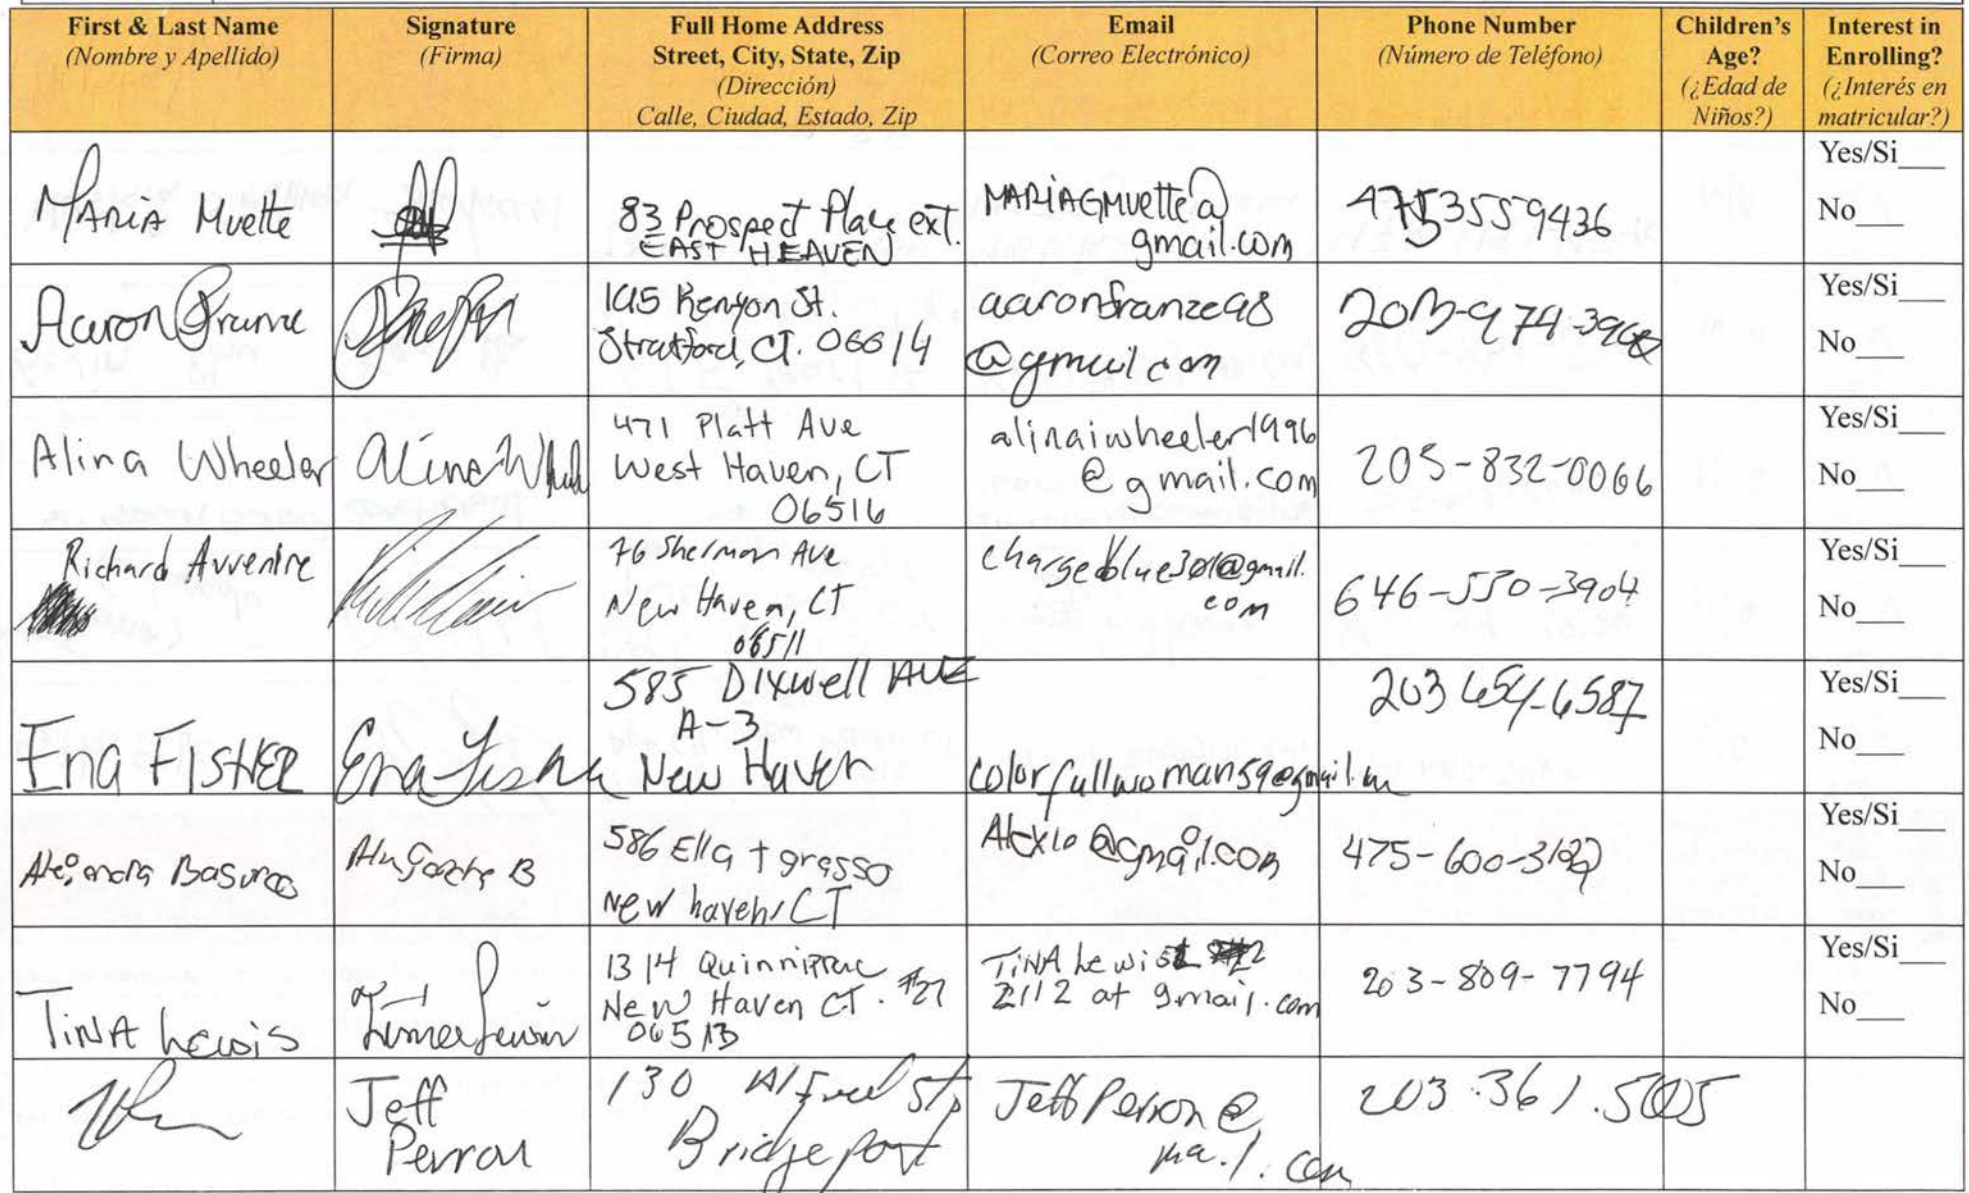 First & Last Name
(Nombre y Apellido)
Signature
(Firma)
Full Home Address
Street, City, State, Zip
(Dirección)
Calle, Ciudad, Estado, Zip
Email
(Correo Electrónico)
Phone Number
(Número de Teléfono)
Children's
Age?
(¿Edad de
Niños?)
Interest in
Enrolling?
(¿Interés en
matricular?)
MARIA Muette
83 Prospect Place ext.
EAST HEAVEN
MARIAGMuette@
gmail.com
4753559436
Yes/Si___
No___
Aaron
Kenyon St.
Stratford, CT. 06614
aaronfranze98
@gmail.com
Yes/Si___
No___
Alina Wheeler
Alina
471 Platt Ave
West Haven, CT
06516
alinaiwheeler1996
@gmail.com
203-832-0066
Yes/Si___
No___
Richard Avventre
76 Sherman Ave
New Haven, CT
06511
chargeblue301@gmail.
com
646-550-3904
Yes/Si___
No___
Ena FISHER
Ena Fisher
585 Dixwell AVE
A-3
New Haven
colorfullwoman59@gmail.
203 654-6587
Yes/Si___
No___
586 Ella t grasso
New haven, CT
Alexio@gmail.com
475-600-
Yes/Si___
No___
TINA Lewis
1314 Quinnipiac
New Haven CT. #27
06513
TINA Lewis
2112 at gmail.com
203-809-7794
Yes/Si___
No___
Jeff
Perron
130 Alfred St,
Bridgeport
JeffPerron@
203.361.5005